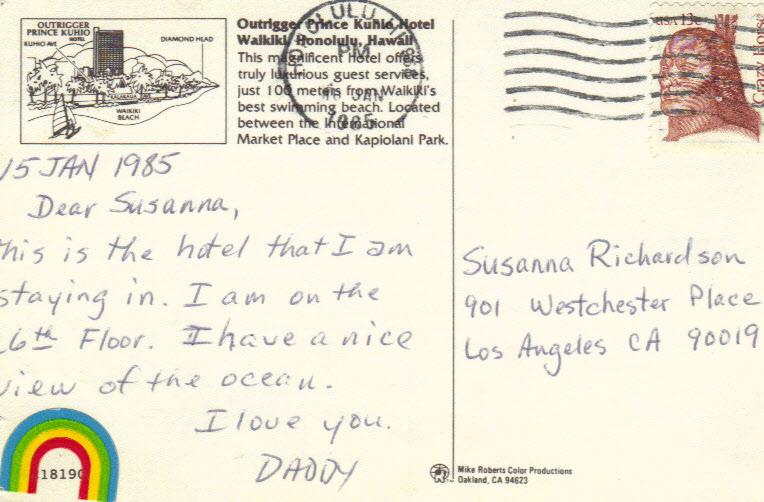 OUTRIGGER
PRINCE KUHIO
HOTEL
KUHIO AVE
DIAMOND HEAD
KALAKAUA AVE
WAIKIKI
BEACH
Outrigger Prince Kuhio Hotel
Waikiki, Honolulu, Hawaii
This magnificent hotel offers
truly luxurious guest services,
just 100 meters from Waikiki's
best swimming beach. Located
between the International
Market Place and Kapiolani Park.
HONOLULU
PM
JAN
1985
USA 13c
Crazy Horse
15 JAN 1985
Dear Susanna,
this is the hotel that I am
staying in. I am on the
6th Floor. I have a nice
view of the ocean.
I love you.
DADDY
Susanna Richardson
901 Westchester Place
Los Angeles CA 90019
18190
Mike Roberts Color Productions
Oakland, CA 94623